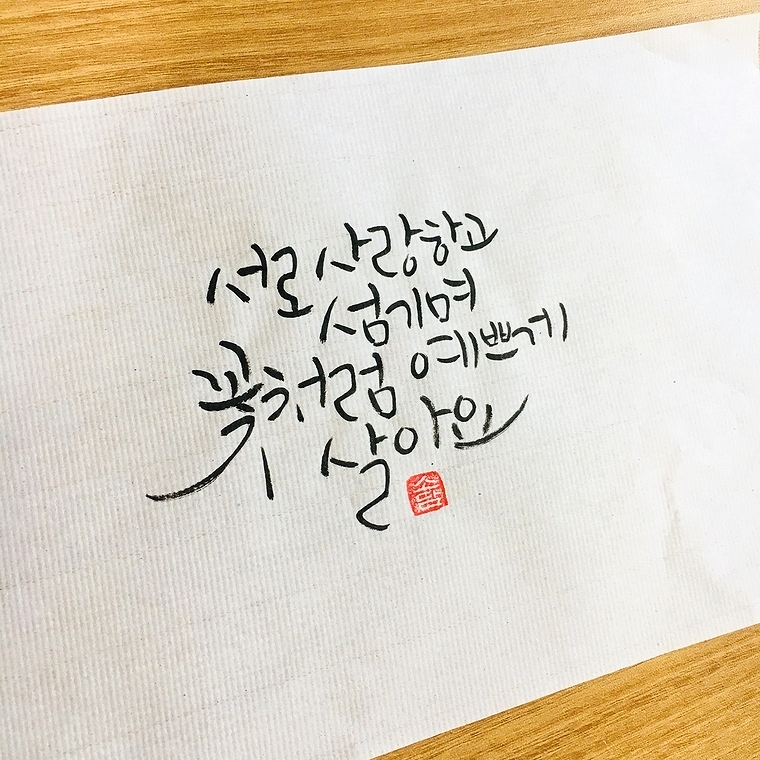 서로 사랑하고
섬기며
꽃처럼 예쁘게
살아요